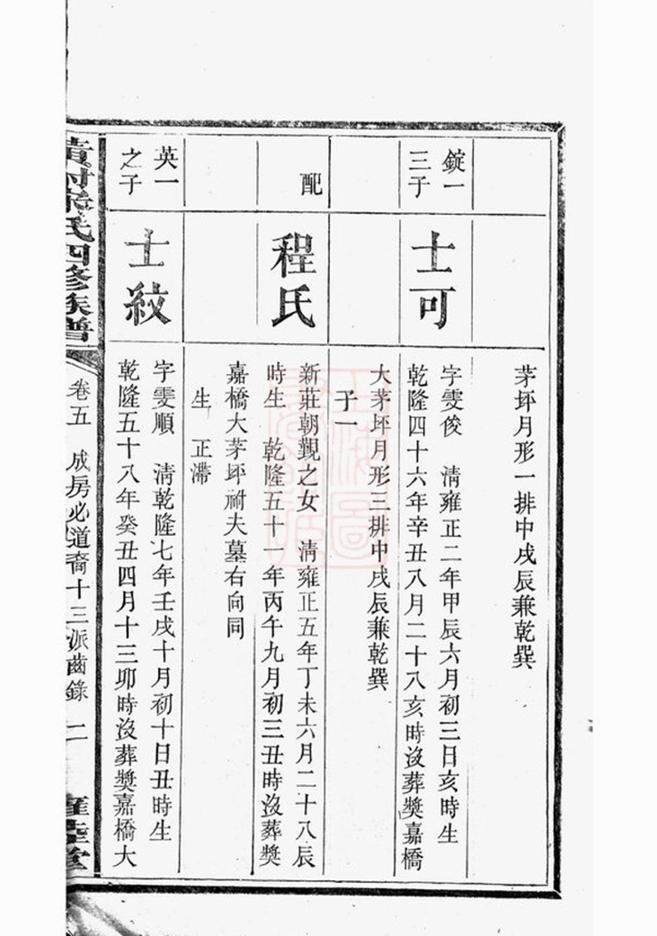 茅坪月形一排中戌辰兼乾巽
錠一
三子
士可
字雯俊　清雍正二年甲辰六月初三日亥時生
乾隆四十六年辛丑八月二十八亥時沒葬獎嘉橋
大茅坪月形三排中戌辰兼乾巽
子一
配
程氏
新莊朝觀之女　清雍正五年丁未六月二十八辰
時生　乾隆五十一年丙午九月初三丑時沒葬獎
嘉橋大茅坪祔夫墓右向同
生　正滯
英一
之子
士紋
字雯順　清乾隆七年壬戌十月初十日丑時生
乾隆五十八年癸丑四月十三卯時沒葬獎嘉橋大
氏四修族譜
卷五　成房必道裔十三派齒錄　二
堂